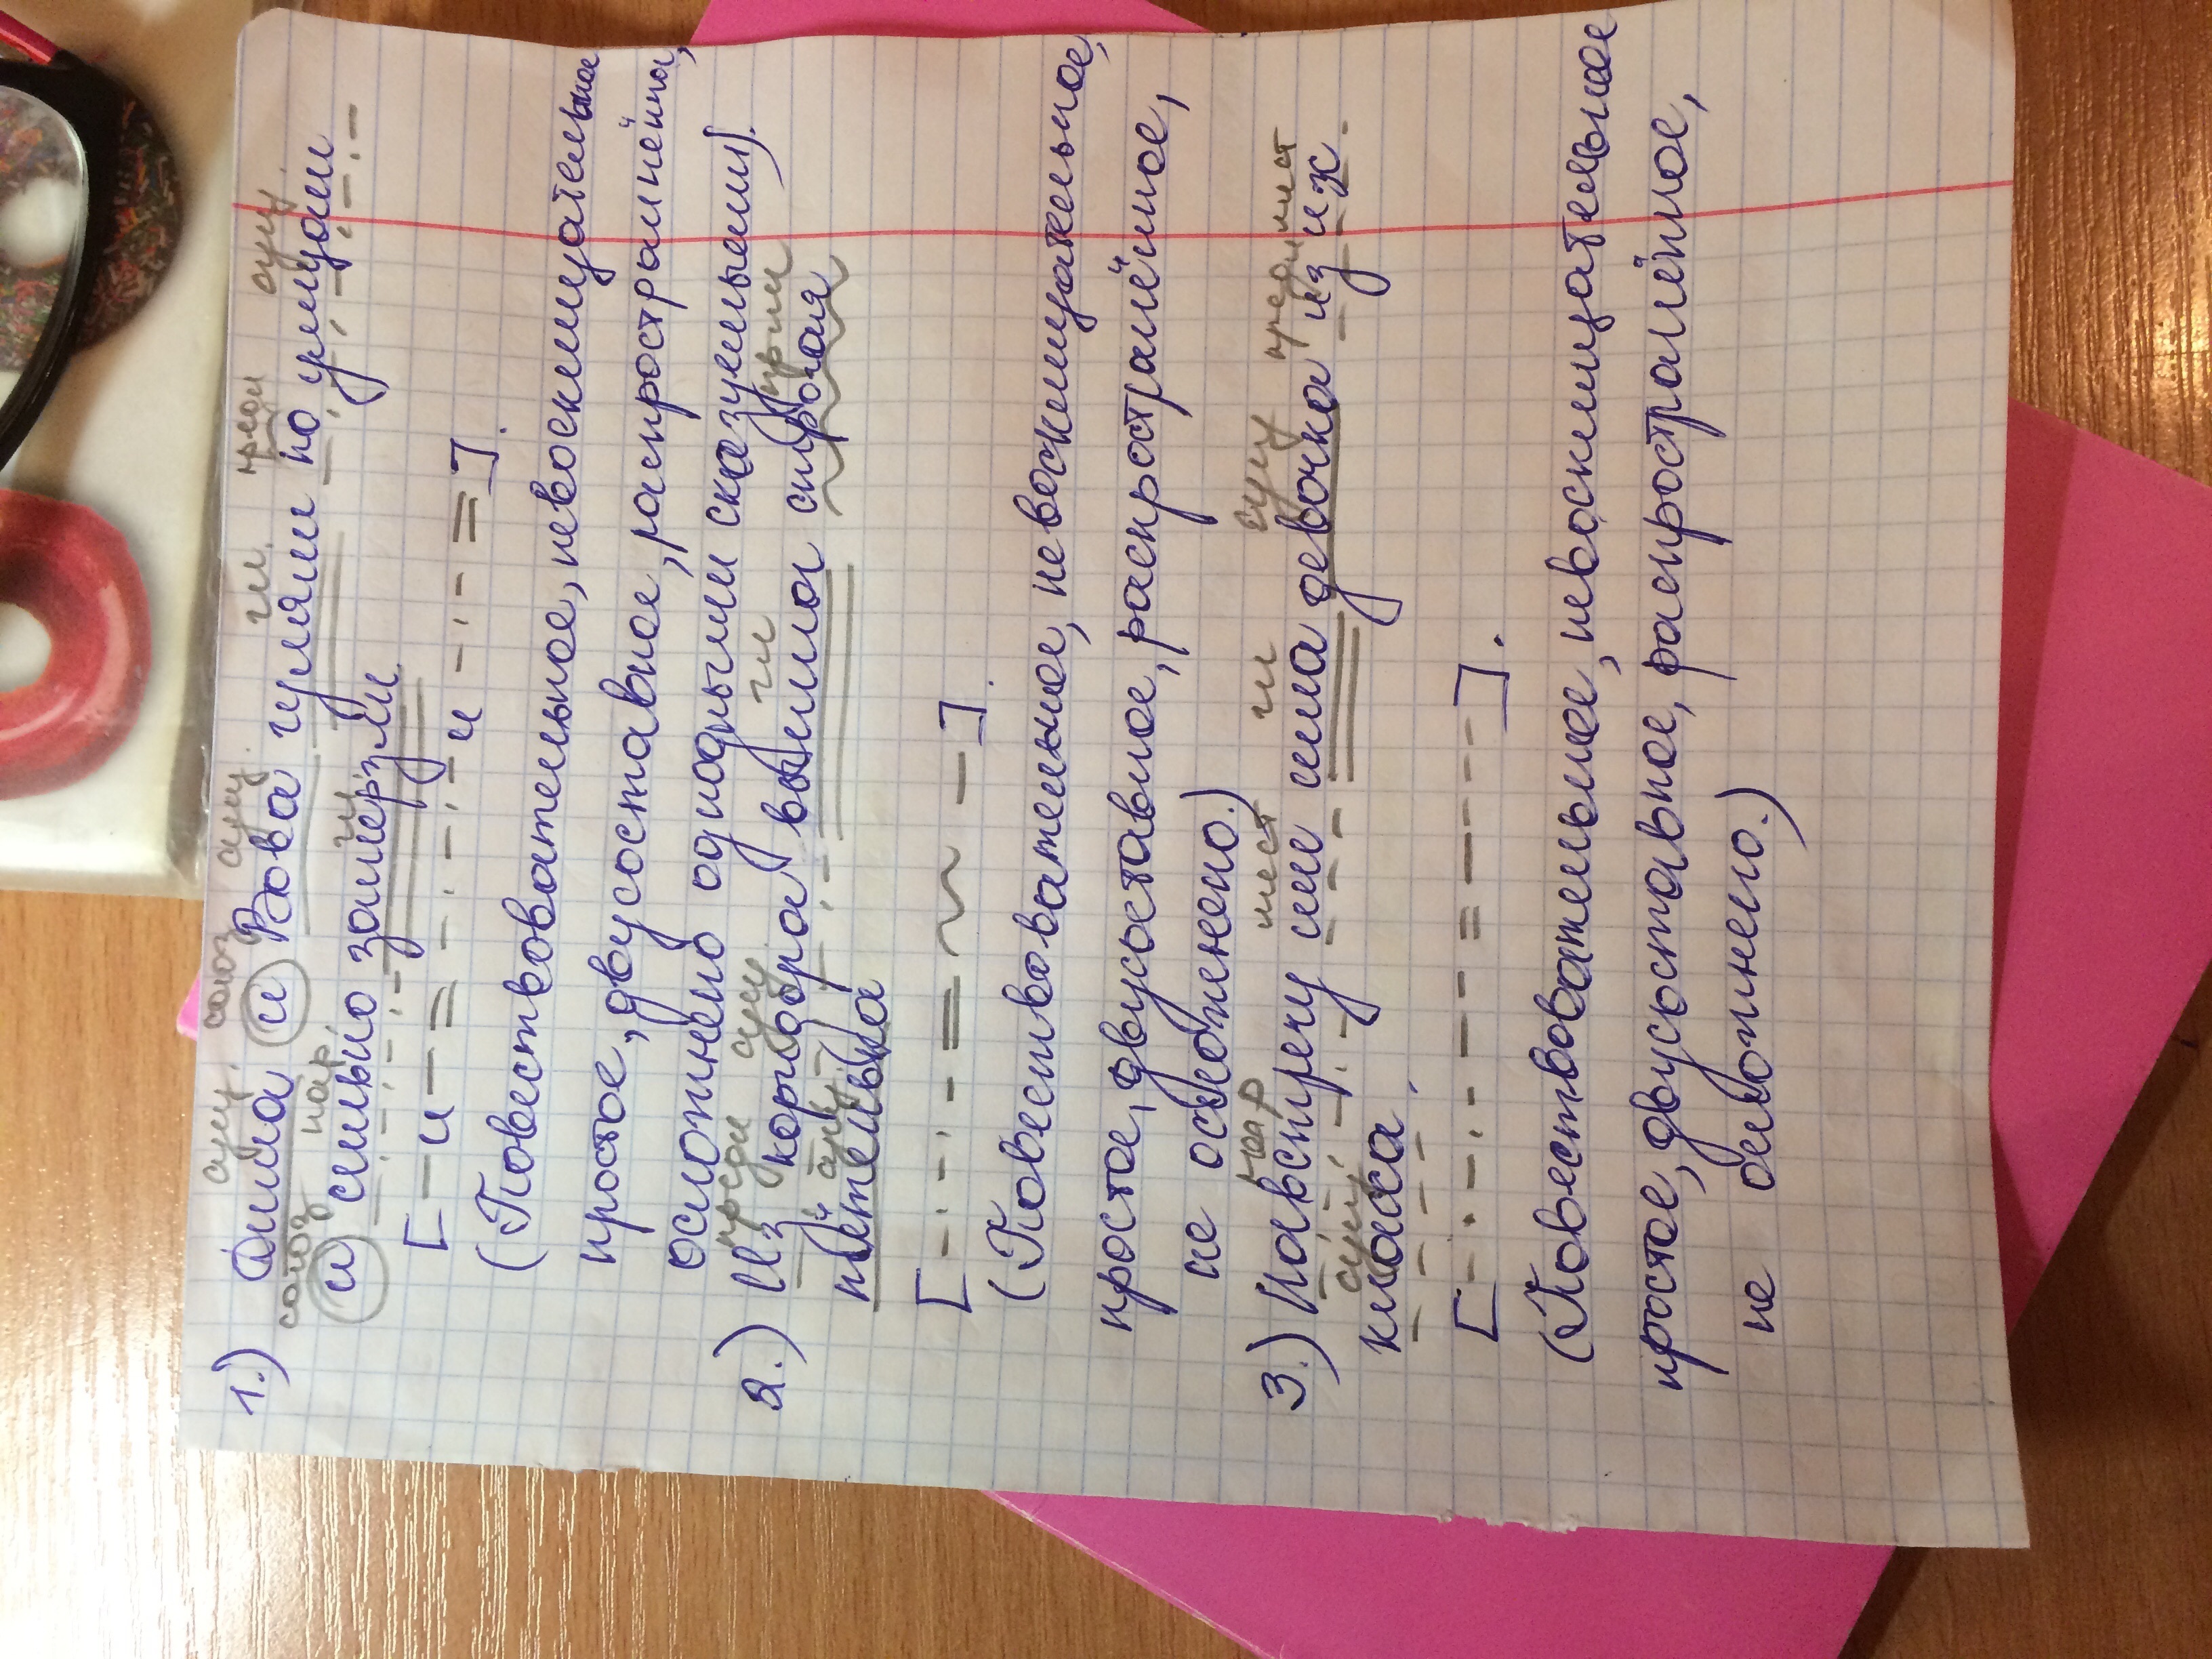 сущ. союз сущ. гл. предл сущ.
1.) Дима и Вова гуляли по улицам
союз нар гл
и сильно замёрзли.
[— и — = —.—.— и —.— =].
(Повествовательное, невосклицательное
простое, двусоставное, распространённое,
осложнено однодными сказуемыми).
предл сущ гл прил
2.) Из коридора вышла старая
сущ
петелька
[—.—.— = ~ —].
(Повествовательное, невосклицательное,
простое, двусоставное, распространённое,
не осложнено.)
нар мест гл сущ предл мест
3.) Навстречу им шла девочка из их
сущ.
класса.
[—.—.— — — = — - - - -].
(Повествовательное, невосклицательное
простое, двусоставное, распространённое,
не осложнено.)